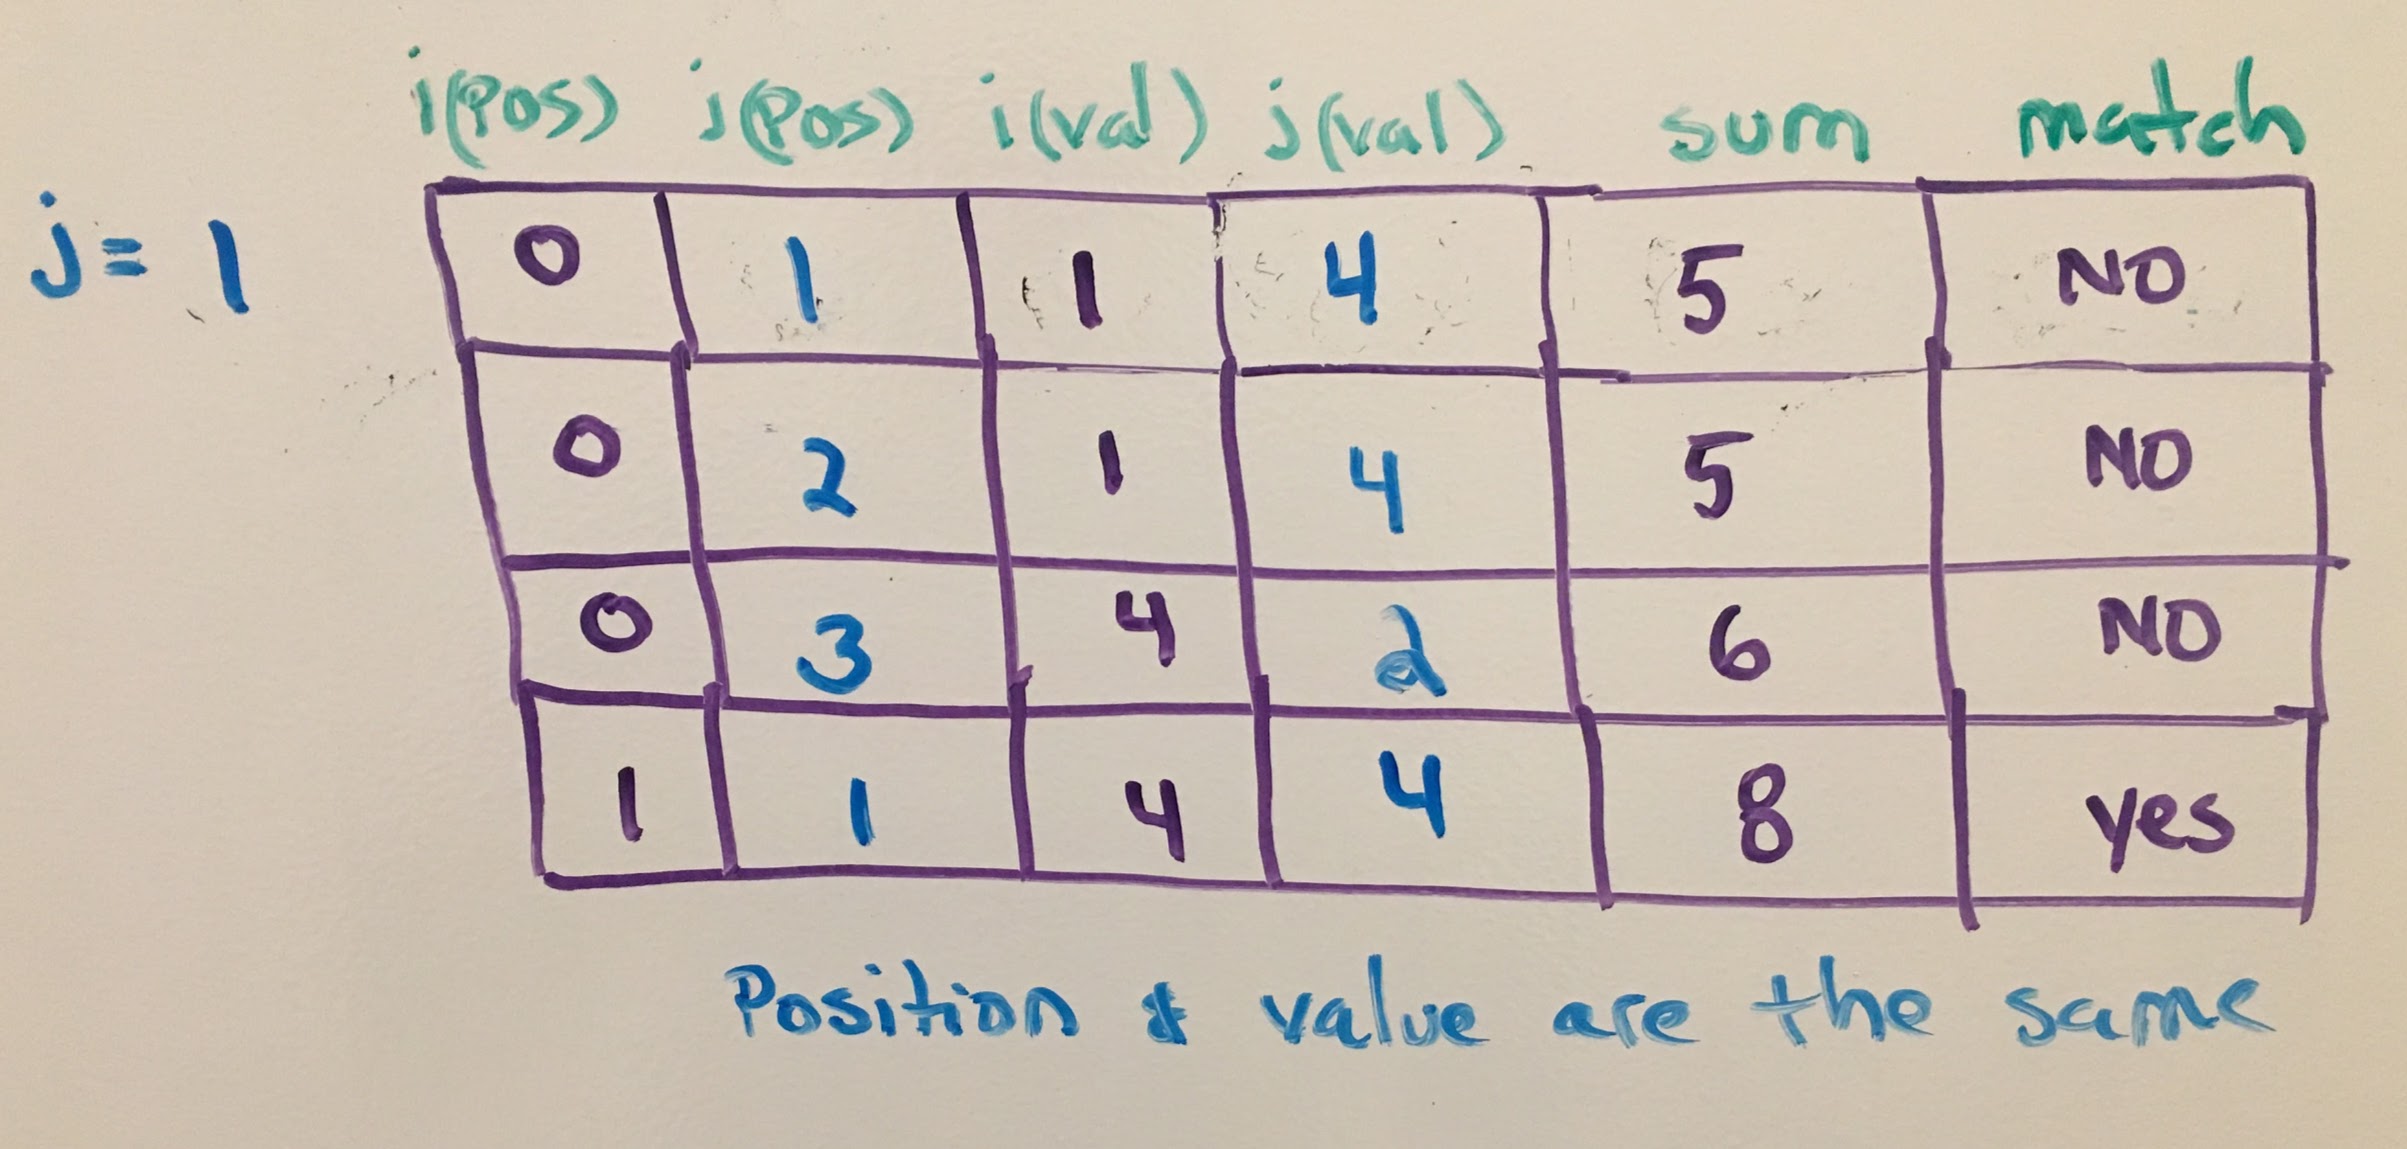 i(Pos) j(Pos) i(val) j(val) sum match
j= 1 0 1 1 4 5 NO
0 2 1 4 5 NO
0 3 4 2 6 NO
1 1 4 4 8 yes
Position & value are the same